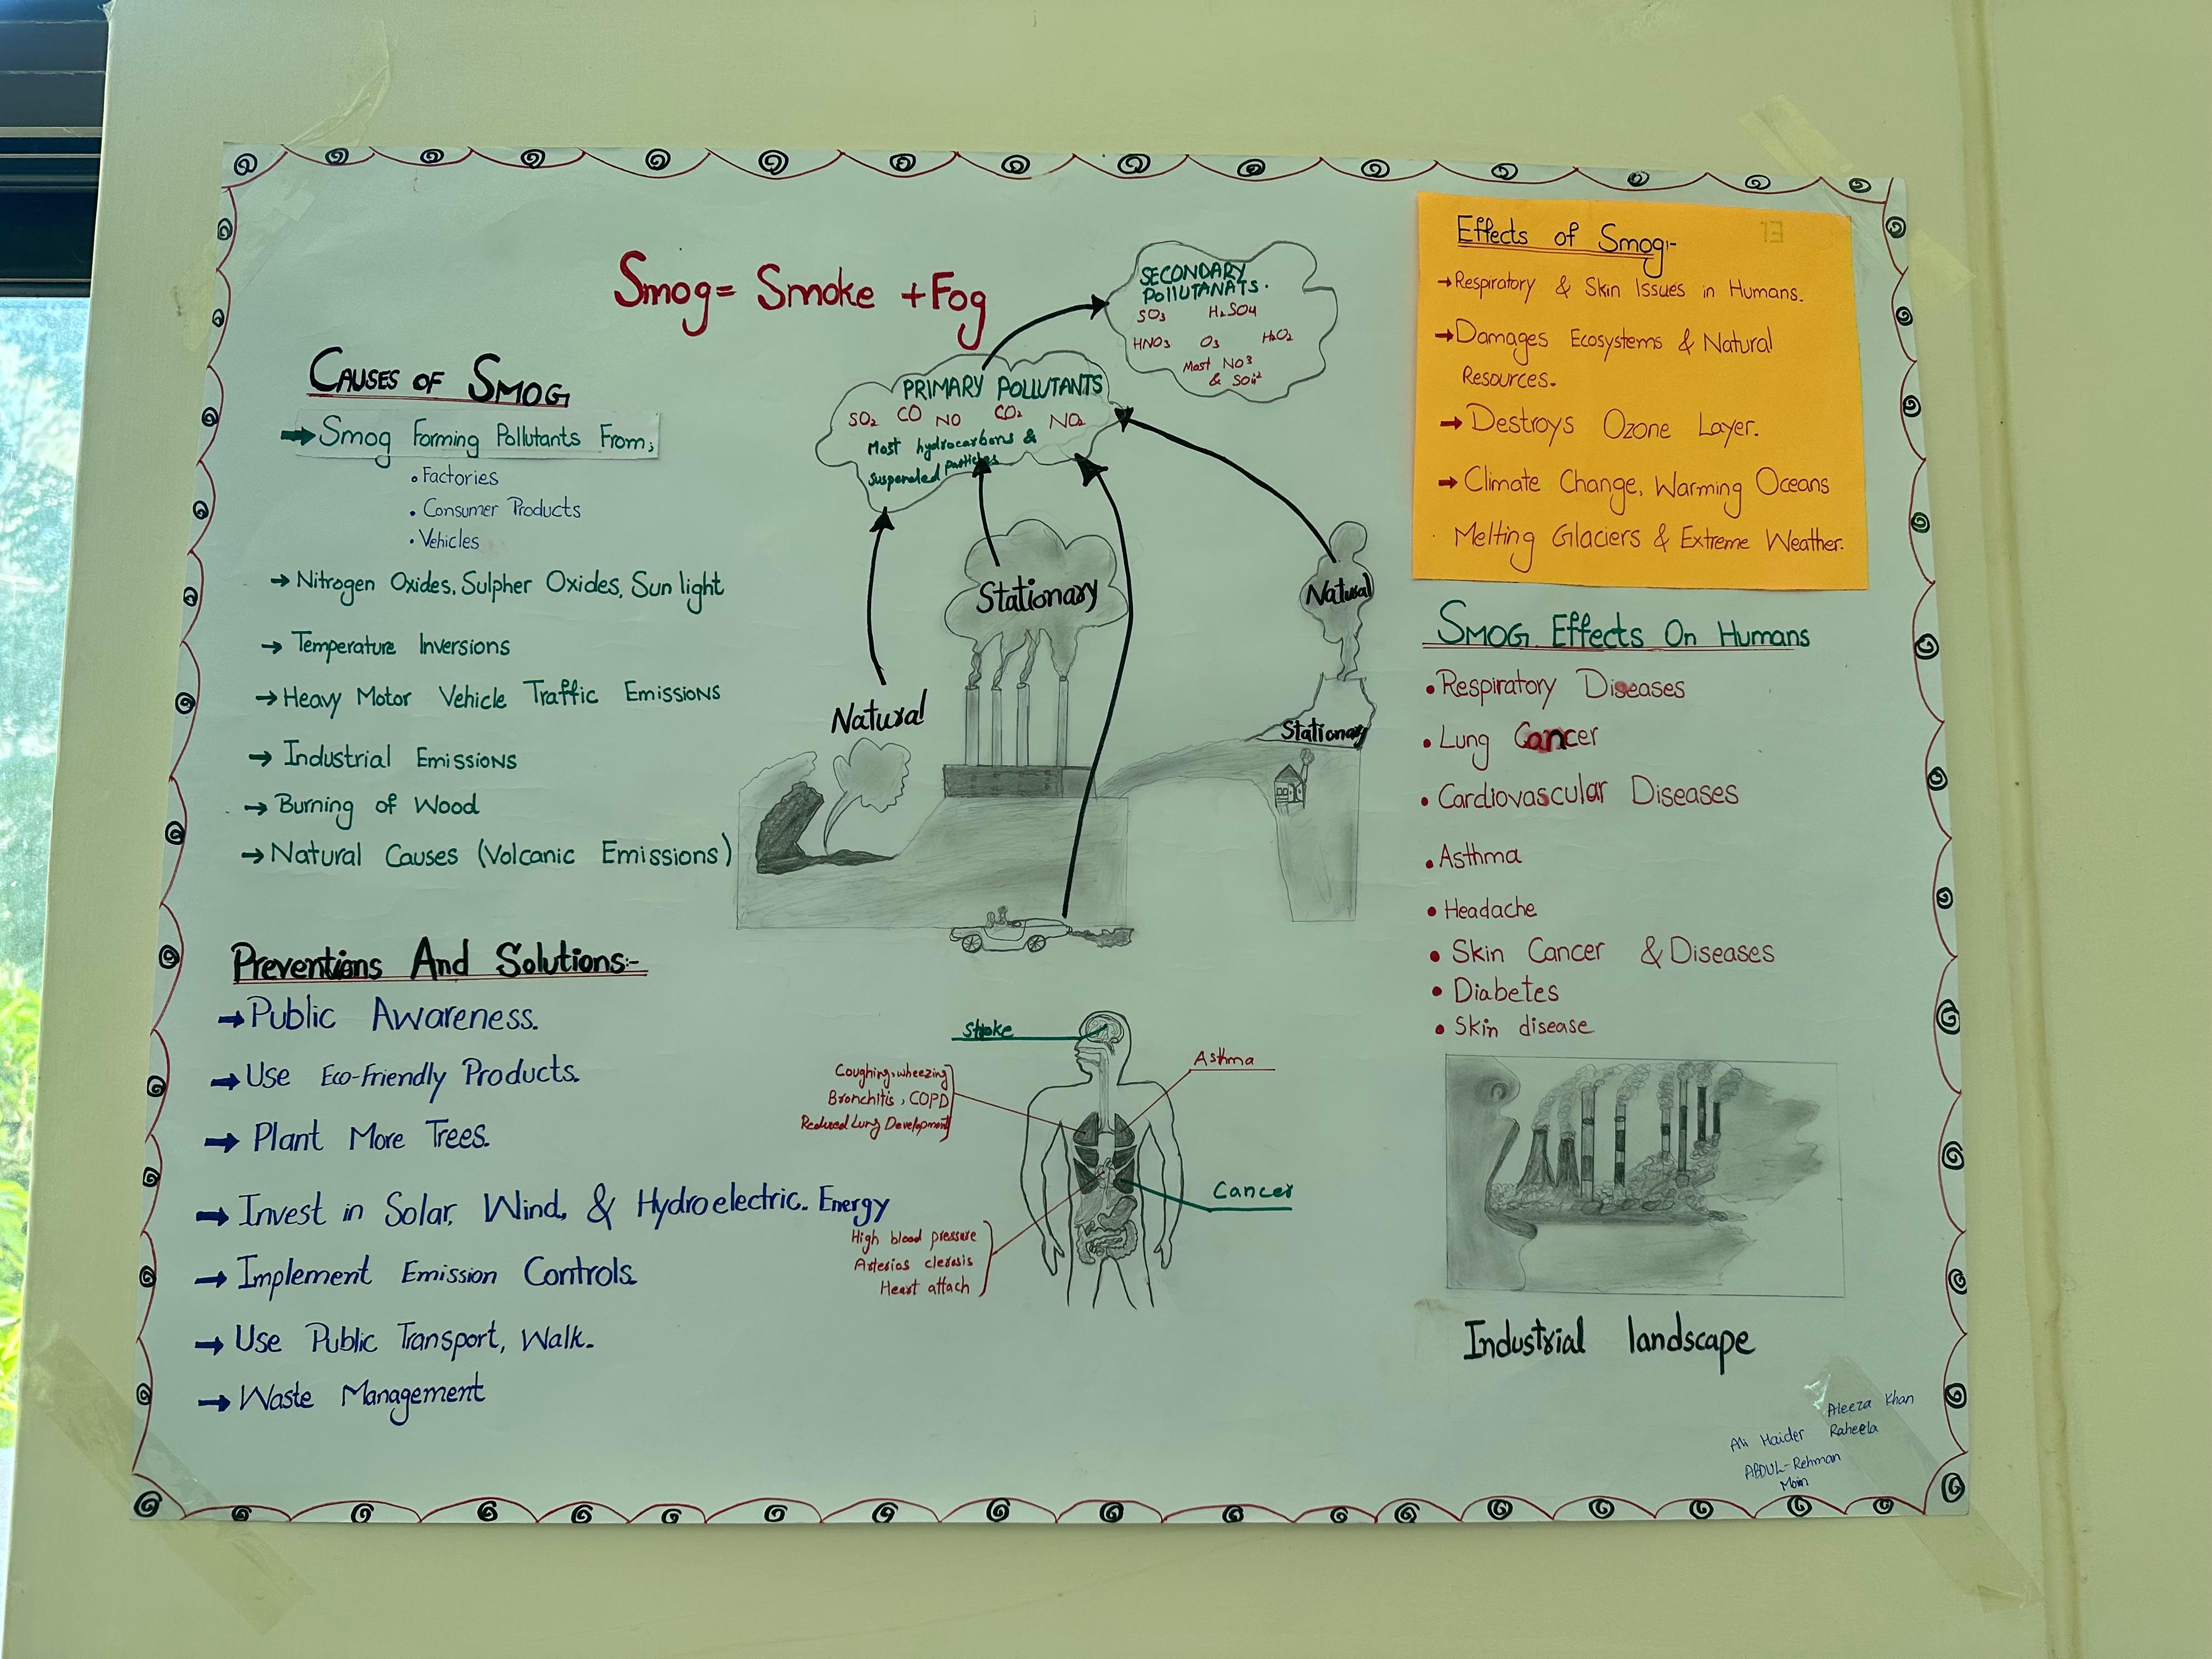 Smog= Smoke +Fog
CAUSES OF SMOG
Smog Forming Pollutants From;
• Factories
• Consumer Products
• Vehicles
→ Nitrogen Oxides, Sulpher Oxides, Sun light
→ Temperature Inversions
→ Heavy Motor Vehicle Traffic Emissions
→ Industrial Emissions
→ Burning of Wood
→ Natural Causes (Volcanic Emissions)
Preventions And Solutions:-
→ Public Awareness.
→ Use Eco-Friendly Products.
→ Plant More Trees.
→ Invest in Solar, Wind, & Hydroelectric. Energy
→ Implement Emission Controls.
→ Use Public Transport, Walk.
→ Waste Management
SECONDARY
POLLUTANATS.
SO3 H2SO4
HNO3 O3 H2O2
Most NO3
& SO4²
PRIMARY POLLUTANTS
SO2 CO NO CO2 NO2
Most hydrocarbons &
suspended particles
Stationary
Natural
Natural
Stationary
Stroke
Coughing, wheezing
Bronchitis, COPD
Reduced Lung Development
Asthma
Cancer
High blood pressure
Arterios clerosis
Heart attach
Effects of Smog:-
→ Respiratory & Skin Issues in Humans.
→ Damages Ecosystems & Natural
Resources.
→ Destroys Ozone Layer.
→ Climate Change, Warming Oceans
Melting Glaciers & Extreme Weather.
SMOG Effects On Humans
• Respiratory Diseases
• Lung Cancer
• Cardiovascular Diseases
• Asthma
• Headache
• Skin Cancer & Diseases
• Diabetes
• Skin disease
Industrial landscape
Aleeza Khan
Ali Haider Raheela
ABDUL-Rehman
Moin